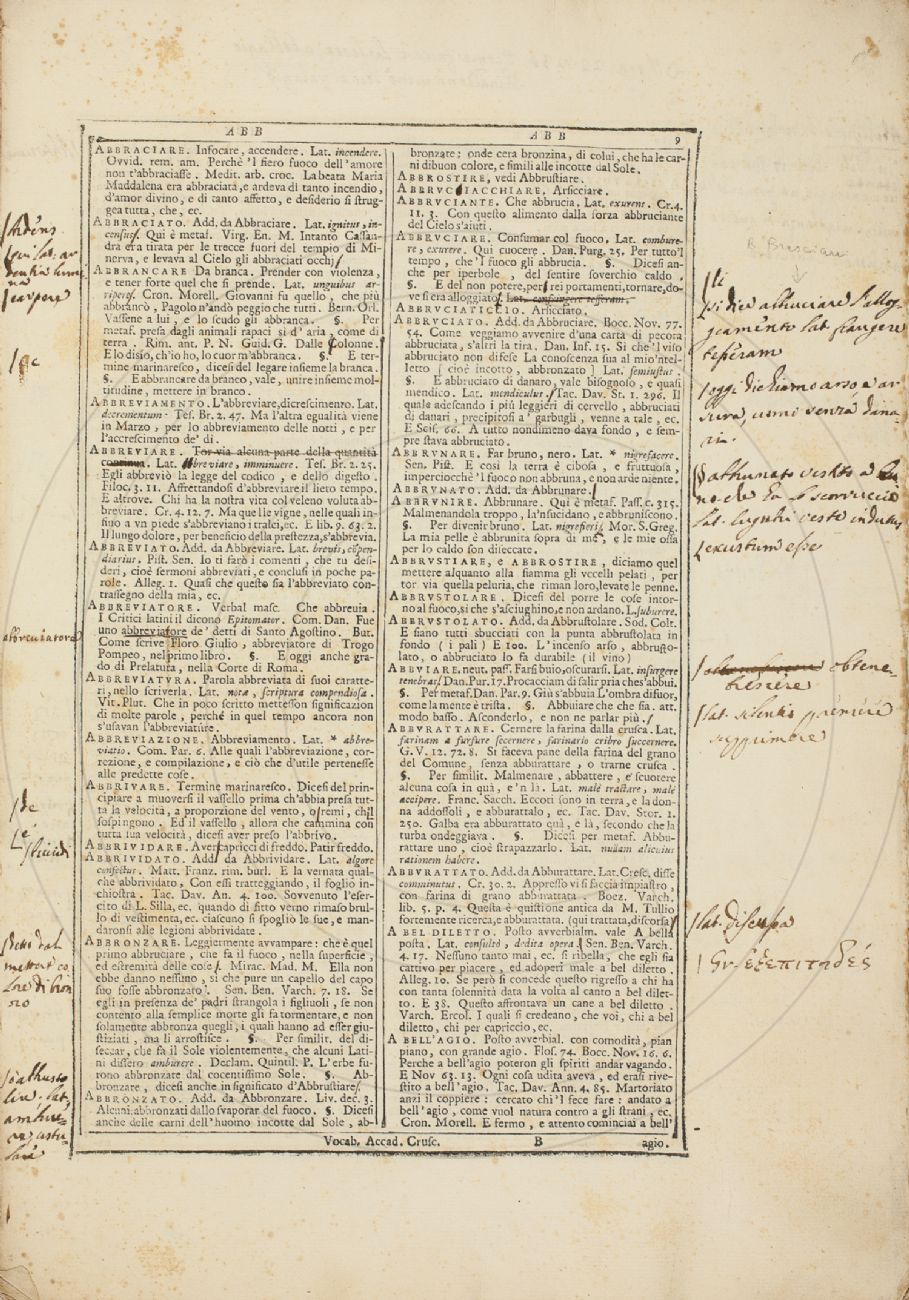 ABB
ABB 9
ABBRACIARE. Infocare, accendere. Lat. incendere.
Ovvid. rem. am. Perchè 'l fiero fuoco dell'amore
non t'abbraciasse. Medit. arb. croc. La beata Maria
Maddalena era abbraciatá, e ardeva di tanto incendio,
d'amor divino, e di tanto affetto, e desiderio si strug-
gea tutta, che, ec.
ABBRACIATO. Add. da Abbraciare. Lat. ignitus, in-
census. Qui è metaf. Virg. En. M. Intanto Cassan-
dra era tirata per le trecce fuori del tempio di Mi-
nerva, e levava al Cielo gli abbraciati occhi
ABBRANCARE Da branca. Prender con violenza,
e tener forte quel che si prende. Lat. unguibus ar-
ripere. Cron. Morell. Giovanni fu quello, che più
abbrancò, Pagolo n'andò peggio che tutti. Bern. Orl.
Vassene a lui, e lo scudo gli abbranca. §. Per
metaf. presa dagli animali rapaci si d'aria, come di
terra. Rim. ant. P. N. Guid. G. Dalle Colonne.
E lo disio, ch'io ho, lo cuor m'abbranca. §. E ter-
mine marinaresco, dicesi del legare insieme la branca.
§. E abbrancare da branco, vale, unire insieme mol-
titudine, mettere in branco.
ABBREVIAMENTO. L'abbreviare, dicrescimento. Lat.
decrementum. Tes. Br. 2. 47. Ma l'altra egualità viene
in Marzo, per lo abbreviamento delle notti, e per
l'accrescimento de' dì.
ABBREVIARE. Tor via alcuna parte della quantità
continua. Lat. abbreviare, imminuere. Tes. Br. 2. 25.
Egli abbreviò la legge del codico, e dello digesto.
Filoc. 3. 11. Affrettandosi d'abbreviare il lieto tempo.
E altrove. Chi ha la nostra vita col veleno voluta ab-
breviare. Cr. 4. 12. 7. Ma que lle vigne, nelle quali in-
sino a vn piede s'abbreviano i tralci, ec. E lib. 9. 63. 2.
Il lungo dolore, per beneficio della prestezza, s'abbrevia.
ABBREVIATO. Add. da Abbreviare. Lat. brevis, compen-
diarius. Pist. Sen. Io ti farò i comenti, che tu desi-
deri, cioè sermoni abbreviati, e conclusi in poche pa-
role. Alleg. 1. Quasi che questo sia l'abbreviato con-
trassegno della mia, ec.
ABBREVIATORE. Verbal masc. Che abbreuia.
I Critici latini il dicono Epitomator. Com. Dan. Fue
uno abbreviatore de' detti di Santo Agostino. But.
Come scrive Floro Giulio, abbreviatore di Trogo
Pompeo, nel primo libro. §. E oggi anche gra-
do di Prelatura, nella Corte di Roma.
ABBREVIATVRA. Parola abbreviata di suoi caratte-
ri, nello scriverla. Lat. nota, scriptura compendiosa.
Vit. Plut. Che in poco scritto mettesson significazion
di molte parole, perchè in quel tempo ancora non
s'usavan l'abbreviature.
ABBREVIAZIONE. Abbreviamento. Lat. * abbre-
viatio. Com. Par. 6. Alle quali l'abbreviazione, cor-
rezione, e compilazione, e ciò che d'utile pertenesse
alle predette cose.
ABBRIVARE. Termine marinaresco. Dicesi del prin-
cipiare a muoversi il vassello prima ch'abbia presa tut-
ta la velocità, a proporzione del vento, o remi, chil
sospingono, Ed il vassello, allora che cammina con
tutta sua velocità, dicesi aver preso l'abbrivo.
ABBRIVIDARE. Aver capricci di freddo. Patir freddo.
ABBRIVIDATO. Add. da Abbrividare. Lat. algore
confectus. Matt. Franz. rim. burl. E la vernata qual-
che abbrividato, Con essi tratteggiando, il foglio in-
chiostra. Tac. Dav. An. 4. 100. Sovvenuto l'eser-
cito di L. Silla, ec. quando di fitto verno rimaso brul-
lo di vestimenta, ec. ciascuno si spogliò le sue, e man-
daronsi alle legioni abbrividate.
ABBRONZARE. Leggiermente avvampare: che è quel
primo abbruciare, che fa il fuoco, nella superficie,
ed estremità delle cose. Mirac. Mad. M. Ella non
ebbe danno nessuno, sì che pure un capello del capo
suo fosse abbronzato. Sen. Ben. Varch. 7. 18. Se
egli in presenza de' padri strangola i figliuoli, se non
contento alla semplice morte gli fa tormentare, e non
solamente abbronza quegli, i quali hanno ad esser giu-
stiziati, ma li arrostisce. §. Per similit. del di-
seccar, che fa il Sole violentemente, che alcuni Lati-
ni dissero amburere. Declam. Quintil. P. L'erbe fu-
rono abbronzate dal cocentissimo Sole. §. Ab-
bronzare, dicesi anche in significato d'Abbrustiare.
ABBRONZATO. Add. da Abbronzare. Liv. dec. 3.
Alcuni abbronzati dallo svaporar del fuoco. §. Dicesi
anche delle carni dell'huomo incotte dal Sole, ab-
bronzate: onde cera bronzina, di colui, che ha le car-
ni di buon colore, e simili alle incotte dal Sole.
ABBROSTIRE, vedi Abbrustiare.
ABBRVCIACCHIARE, Arsicciare.
ABBRVCIANTE. Che abbrucia, Lat. exurens. Cr. 4.
11. 3. Con questo alimento dalla forza abbruciante
del Cielo s'aiuti.
ABBRVCIARE. Consumar col fuoco. Lat. combure-
re, exurere. Qui cuocere. Dan. Purg. 25. Per tutto'l
tempo, che 'l fuoco gli abbrucia. §. Dicesi an-
che per iperbole, del sentire soverchio caldo.
§. E del non potere, per rei portamenti, tornare, do-
ve si era alloggiato. Lat. confringere tesseram.
ABBRVCIATICCIO. Arsicciato.
ABBRVCIATO. Add. da Abbruciare. Bocc. Nov. 77.
54. Come veggiamo avvenire d'una carta di pecora
abbruciata, s'altri la tira. Dan. Inf. 15. Sì che 'l viso
abbruciato non difese La conoscenza sua al mio 'ntel-
letto [ cioè incotto, abbronzato ] Lat. semiustus.
§. E abbruciato di danaro, vale bisognoso, e quasi
mendico. Lat. mendiculus. Tac. Dav. St. 1. 296. Il
quale adescando i più leggieri di cervello, abbruciati
di danari, precipitosi a' garbugli, venne a tale, ec.
E Scis. 66. A tutto nondimeno dava fondo, e sem-
pre stava abbruciato.
ABBRVNARE. Far bruno, nero. Lat. * nigrefacere.
Sen. Pist. E così la terra è cibosa, e fruttuosa,
imperciocchè 'l fuoco non abbruna, e non arde niente.
ABBRVNATO. Add. da Abbrunare.
ABBRVNIRE. Abbrunare. Qui è metaf. Pass. c. 315.
Malmenandola troppo, la 'nsucidano, e abbruniscono.
§. Per divenir bruno. Lat. nigrefieri. Mor. S. Greg.
La mia pelle è abbrunita sopra di me, e le mie ossa
per lo caldo son diseccate.
ABBRVSTIARE, e ABBROSTIRE, diciamo quel
mettere alquanto alla fiamma gli vccelli pelati, per
tor via quella peluria, che riman loro, levate le penne.
ABBRVSTOLARE. Dicesi del porre le cose intor-
no al fuoco, sì che s'asciughino, e non ardano. L. suburere.
ABBRVSTOLATO. Add. da Abbrustolare. Sod. Colt.
E siano tutti sbucciati con la punta abbrustolata in
fondo ( i pali ) E 100. L'incenso arso, abbrusto-
lato, o abbruciato lo fa durabile ( il vino )
ABVIARE. neut. pass. Farsi buio, oscurarsi. Lat. insurgere
tenebras. Dan. Pur. 17. Procacciam di salir pria ches'abbui.
§. Per metaf. Dan. Par. 9. Giù s'abbuia L'ombra di fuor,
come la mente è trista. §. Abbuiare che che sia. att.
modo basso. Asconderlo, e non ne parlar più.
ABBVRATTARE. Cernere la farina dalla crusca. Lat.
farinam a furfure secernere, farinario cribro succernere.
G. V. 12. 72. 8. Si faceva pane della farina del grano
del Comune, senza abburattare, o trarne crusca.
§. Per similit. Malmenare, abbattere, e scuotere
alcuna cosa in quà, e 'n là. Lat. malè tractare, malè
accipere. Franc. Sacch. Eccoti sono in terra, e la don-
na addossoli, e abburattalo, ec. Tac. Dav. Stor. 1.
250. Galba era abburattato quà, e là, secondo che la
turba ondeggiava. §. Dicesi per metaf. Abbu-
rattare uno, cioè strapazzarlo. Lat. nullam alicuius
rationem habere.
ABBVRATTATO. Add. da Abburattare. Lat. Cresc. disse
comminutus. Cr. 30. 2. Appresso vi si faccia impiastro,
con farina di grano abburattata. Boez. Varch.
lib. 5. p. 4. Questa è quistione antica da M. Tullio
fortemente ricerca, e abburattata. (qui trattata, discorsa)
A BEL DILETTO. Posto avverbialm. vale A bella
posta. Lat. consultò, dedita opera. Sen. Ben. Varch.
4. 17. Nessuno tanto mai, ec. si ribella, che egli sia
cattivo per piacere, ed adoperi male a bel diletto.
Alleg. 10. Se però si concede questo rigresso a chi ha
con tanta solennità data la volta al canto a bel dilet-
to. E 38. Questo affrontava un cane a bel diletto.
Varch. Ercol. I quali si credeano, che voi, chi a bel
diletto, chi per capriccio, ec.
A BELL'AGIO. Posto avverbial. con comodità, pian
piano, con grande agio. Flos. 74. Bocc. Nov. 16. 6.
Perche a bell'agio poteron gli spiriti andar vagando.
E Nov 63. 13. Ogni cosa udita aveva, ed erasi rive-
stito a bell'agio. Tac. Dav. Ann. 4. 85. Martoriato
anzi il coppiere: cercato chi 'l fece fare: andato a
bell'agio, come vuol natura contro a gli strani, ec.
Cron. Morell. E fermo, e attento cominciai a bell'
Vocab. Accad. Crusc. B agio.
carpere
abbreviatore
de
e
si dice abbruciare l'allog-
giamento lat. frangere
tesseram
oggi diciamo arso e ar-
siccio, uomi senza dana-
ri.
exustum esse
obtene-
brescere
lat. silentio premere
lat. discussa